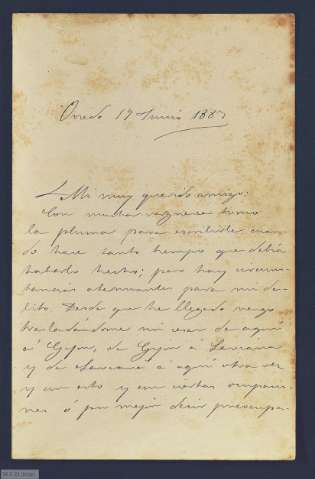 Oviedo 17 Junio 1887
Mi muy querido amigo:
Con mucha vergüenza tomo
la pluma para escribirle, cuan-
do hace tanto tiempo que debía
haberlo hecho; pero hay circuns-
tancias atenuantes para mi de-
lito. Desde que he llegado vengo
trasladandome mi casa de aquí
á Gijon, de Gijon á
y de á aquí otra vez
y en esto y en ciertas ocupacio-
nes ó por mejor decir preocupa-